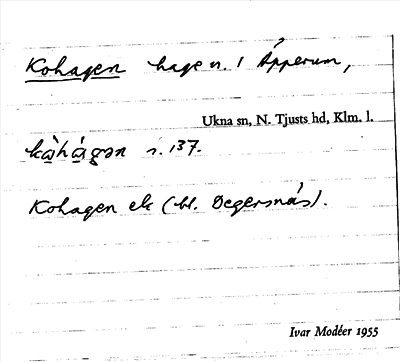 Kohagen hage n. 1 Äpperum,
Ukna sn, N. Tjusts hd, Klm. l.
kὼhά̠gən s. 137.
Kohagen ek (bl. Degersnäs).
Ivar Modéer 1955